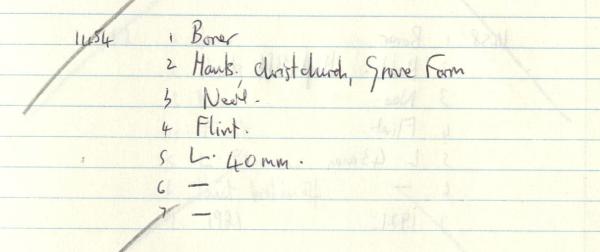 1454 1 Borer
2 Hants. Christchurch, Grove Farm
3 Neol.
4 Flint.
5 L. 40mm.
6 —
7 —